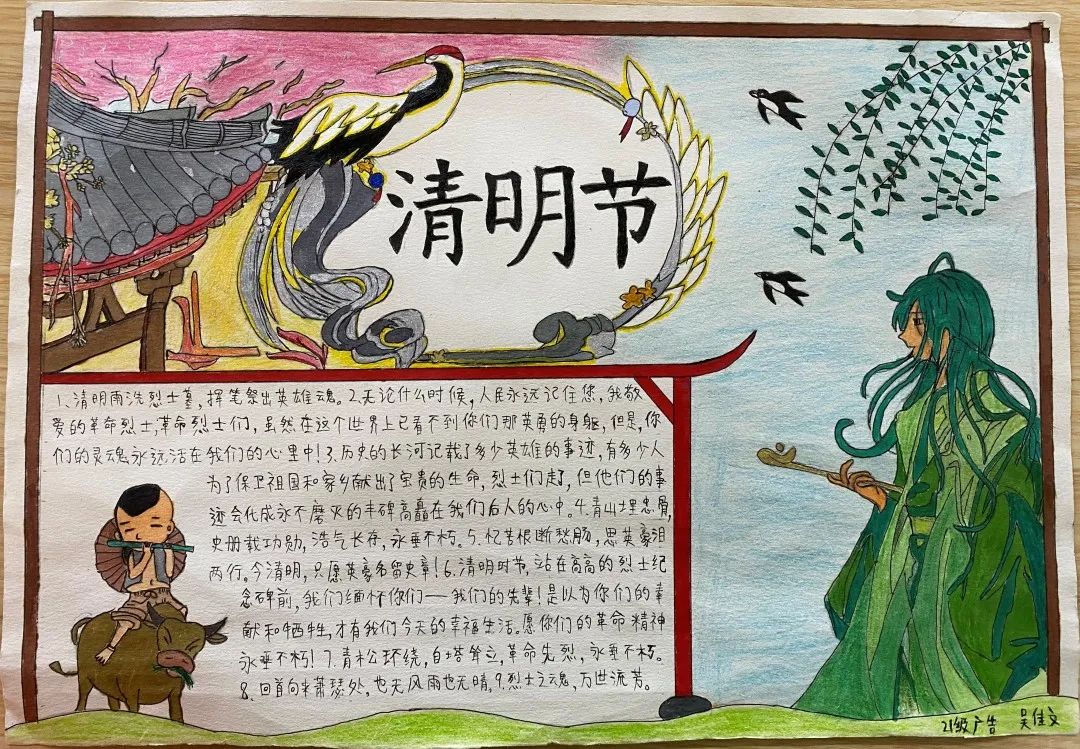 清明节
1、清明雨洗烈士墓,挥笔祭出英雄魂。2.无论什么时候,人民永远记住您,我敬
爱的革命烈士,革命烈士们,虽然在这个世界上已看不到你们那英勇的身躯,但是,你
们的灵魂永远活在我们的心里中!3.历史的长河记载了多少英雄的事迹,有多少人
为了保卫祖国和家乡献出了宝贵的生命,烈士们走了,但他们的事
迹会化成永不磨灭的丰碑高矗在我们后人的心中。4.青山埋忠骨,
史册载功勋,浩气长存,永垂不朽。5.忆苦恨断愁肠,思英豪泪
两行。今清明,只愿英豪名留史章!6.清明时节,站在高高的烈士纪
念碑前,我们缅怀你们——我们的先辈!是以为你们的奉
献和牺牲,才有我们今天的幸福生活。愿你们的革命精神
永垂不朽!7.青松环绕,白塔耸立,革命先烈,永垂不朽。
8.回首向来萧瑟处,也无风雨也无晴,9.烈士之魂,万世流芳。
21级广告 吴佳文